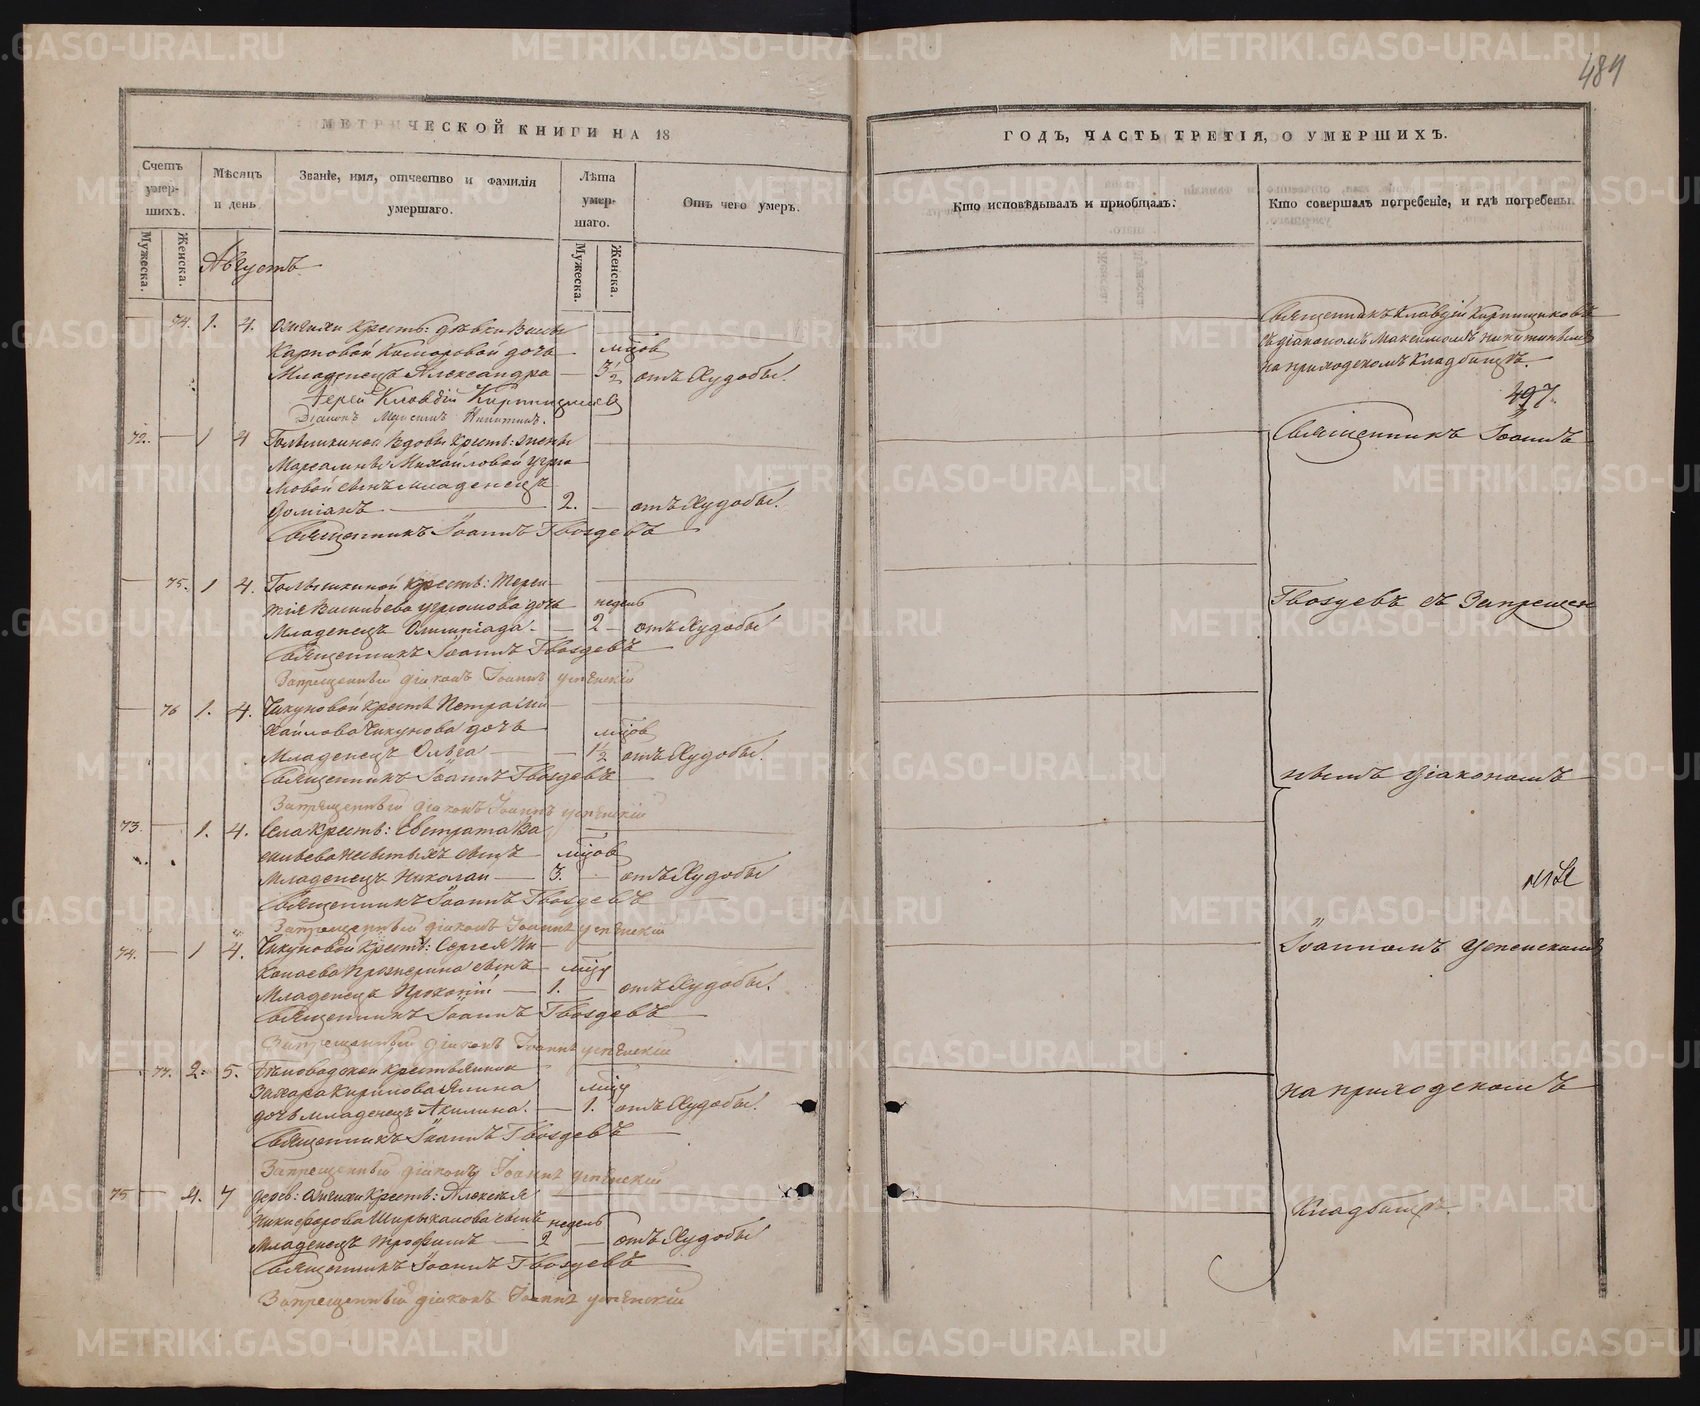 489
МЕТРИЧЕСКОЙ КНИГИ НА 18
Счетъ умер-шихъ.
Мѣсяцъ и день.
Званіе, имя, отчество и фамилія умершаго.
Лѣта умер-шаго.
Отъ чего умеръ.
Мужеска.
Женска.
Мужеска.
Женска.
Августъ
74. 1. 4. крестъ: дѣвки
Карповой дочь мцов
Младенецъ Александра 3 1/2 отъ Худобы.
Іерей Клавдій Кирпищиков
Діаконъ Максимъ Никитинъ.
72. 1 4 вдовы Крест: жены
Михайловой
сынъ младенецъ
2. отъ Худобы.
Священникъ Іоаннъ Гвоздевъ
75. 1 4. Крестъ: Терен-
тія Васильева дочь недель
Младенецъ Олимпіада 2 отъ Худобы
Священникъ Іоаннъ Гвоздевъ
Запрещенный діаконъ Іоаннъ Успенскій
76 1. 4. Чикуновой крестъ Петра Ми-
хайлова Чикунова дочь мцов
Младенецъ Ольга 1 1/2 отъ Худобы.
Священникъ Іоаннъ Гвоздевъ
Запрещенный діаконъ Іоаннъ Успенскій
73. 1. 4. Села Крестъ: Евстрата Ва-
сильева сынъ мцов
Младенецъ Николай 3. отъ Худобы
Священникъ Іоаннъ Гвоздевъ
Запрещенный діаконъ Іоаннъ Успенскій
74. 1 4. Чикуновой Крестъ: Сергея
сынъ мцу
Младенецъ Прокопій 1. отъ Худобы.
Священникъ Іоаннъ Гвоздевъ
Запрещенный діаконъ Іоаннъ Успенскій
77. 2. 5. крестьянина
Захара Кирилова мцу
дочь младенецъ Акилина. 1. отъ Худобы.
Священникъ Іоаннъ Гвоздевъ
Запрещенный діаконъ Іоаннъ Успенскій
75 4. 7 дерев: Крестъ: Алексея
Никифорова сынъ недель
Младенецъ Трофимъ 2 отъ Худобы
Священникъ Іоаннъ Гвоздевъ
Запрещенный діаконъ Іоаннъ Успенскій
ГОДЪ, ЧАСТЬ ТРЕТІЯ, О УМЕРШИХЪ.
Кто исповѣдывалъ и пріобщалъ.
Кто совершалъ погребеніе, и гдѣ погребены.
Священникъ Клавдій Кирпищиковъ
съ діакономъ Максимомъ Никитинымъ
на приходскомъ Кладбищѣ.
497.
Священникъ Іоаннъ
Гвоздевъ съ Запрещен
нымъ діакономъ
Іоанномъ Успенскимъ
на приходскомъ
Кладбищѣ.
METRIKI.GASO-URAL.RU